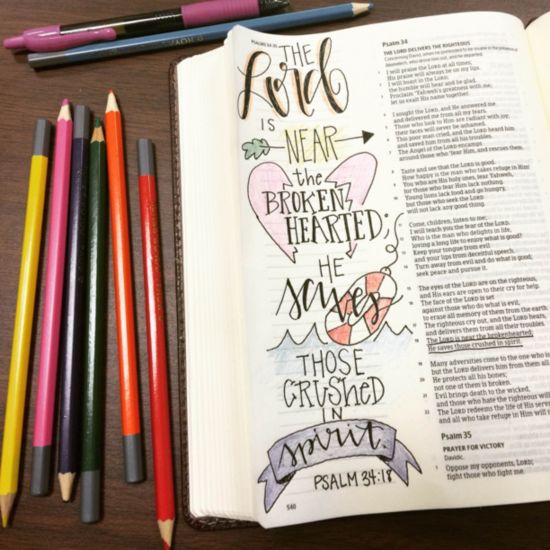 PSALMS 34-35
THE
Lord
IS
NEAR
the
BROKEN
HEARTED;
HE
saves
THOSE
CRUSHED
IN
spirit.
PSALM 34:18
540
Psalm 34
THE LORD DELIVERS THE RIGHTEOUS
Concerning David, when he pretended to be insane in the presence of
Abimelech, who drove him out, and he departed.
1 I will praise the LORD at all times;
His praise will always be on my lips.
2 I will boast in the LORD;
the humble will hear and be glad.
3 Proclaim Yahweh's greatness with me;
let us exalt His name together.
4 I sought the LORD, and He answered me
and delivered me from all my fears.
5 Those who look to Him are radiant with joy;
their faces will never be ashamed.
6 This poor man cried, and the LORD heard him
and saved him from all his troubles.
7 The Angel of the LORD encamps
around those who fear Him, and rescues them.
8 Taste and see that the LORD is good.
How happy is the man who takes refuge in Him!
9 You who are His holy ones, fear Yahweh,
for those who fear Him lack nothing.
10 Young lions lack food and go hungry,
but those who seek the LORD
will not lack any good thing.
11 Come, children, listen to me;
I will teach you the fear of the LORD.
12 Who is the man who delights in life,
loving a long life to enjoy what is good?
13 Keep your tongue from evil
and your lips from deceitful speech.
14 Turn away from evil and do what is good;
seek peace and pursue it.
15 The eyes of the LORD are on the righteous,
and His ears are open to their cry for help.
16 The face of the LORD is set
against those who do what is evil,
to erase all memory of them from the earth.
17 The righteous cry out, and the LORD hears,
and delivers them from all their troubles.
18 The LORD is near the brokenhearted;
He saves those crushed in spirit.
19 Many adversities come to the one who is
but the LORD delivers him from them all.
20 He protects all his bones;
not one of them is broken.
21 Evil brings death to the wicked,
and those who hate the righteous will
22 The LORD redeems the life of His serv
and all who take refuge in Him will
Psalm 35
PRAYER FOR VICTORY
Davidic.
1 Oppose my opponents, LORD;
fight those who fight me.